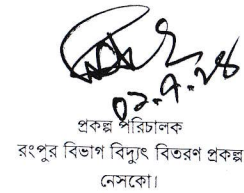 ০২.৭.২৪
প্রকল্প পরিচালক
রংপুর বিভাগ বিদ্যুৎ বিতরণ প্রকল্প
নেসকো।